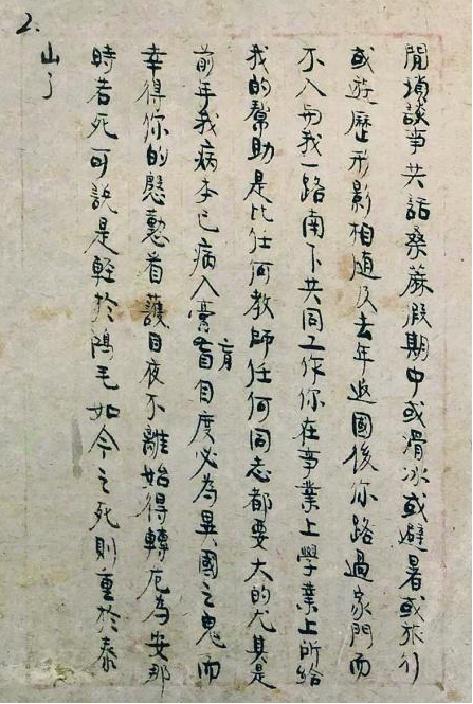 2.
閒瑣談事共話桑蔴假期中或滑冰或避暑或旅行
或遊歷形影相隨及去年返國後你路過家門而
不入与我一路南下共同工作你在事業上學業上所給
我的幫助是比任何教師任何同志都要大的尤其是
前年我病本已病入膏肓自度必為異國之鬼而
幸得你的慇懃看護日夜不離始得轉危為安那
時若死可說是輕於鴻毛如今之死則重於泰
山了